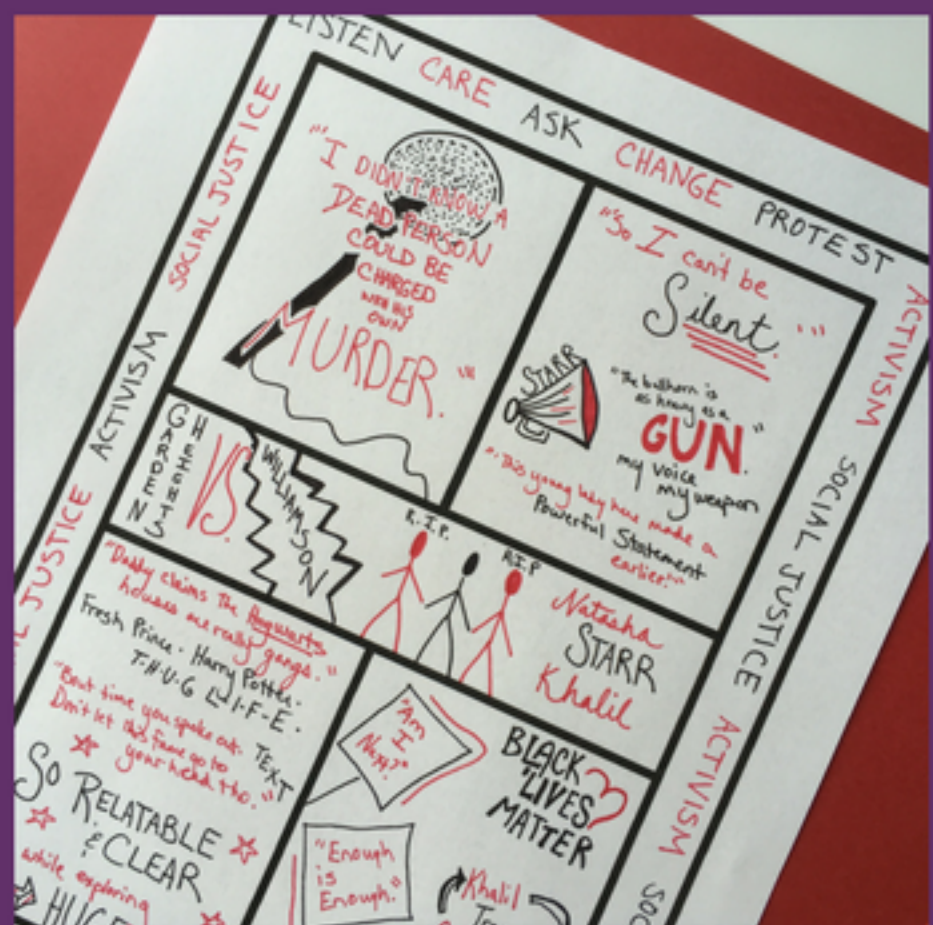 LISTEN CARE ASK CHANGE PROTEST
SOCIAL JUSTICE
ACTIVISM
JUSTICE
ACTIVISM
SOCIAL JUSTICE
ACTIVISM
SOC
"'I DIDN'T KNOW A
DEAD PERSON
COULD BE
CHARGED
WITH HIS
OWN
MURDER.'"
"'So I can't be
Silent.'"
STARR
"The bullhorn is
as heavy as a
GUN."
my voice
my weapon
"'This young lady here made a
Powerful Statement
earlier.'"
GARDEN
HEIGHTS
VS.
WILLIAMSON
R.I.P.
R.I.P
Natasha
STARR
Khalil
"Daddy claims the Hogwarts
houses are really gangs."
Fresh Prince. Harry Potter.
T-H-U-G L-I-F-E.
"Bout time you spoke out.
Don't let this fame go to
your head tho."
TEXT
So RELATABLE
& CLEAR
while exploring
HUGE
"Am
I
Next?"
BLACK
LIVES
MATTER
"Enough
is
Enough."
Khalil